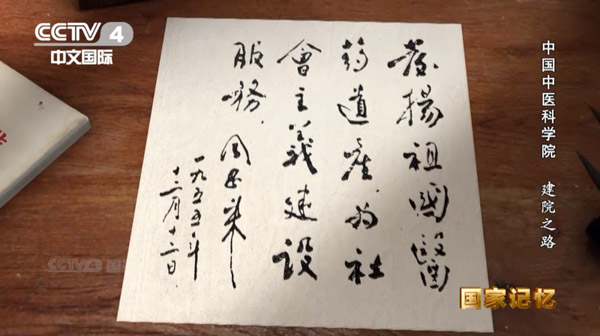 CCTV 4
中文国际
发揚祖國醫
药遺產,为社
會主義建設
服務.
周恩来
一九五五年
十二月十二日
中国中医科学院 建院之路
国家记忆
CCTV4